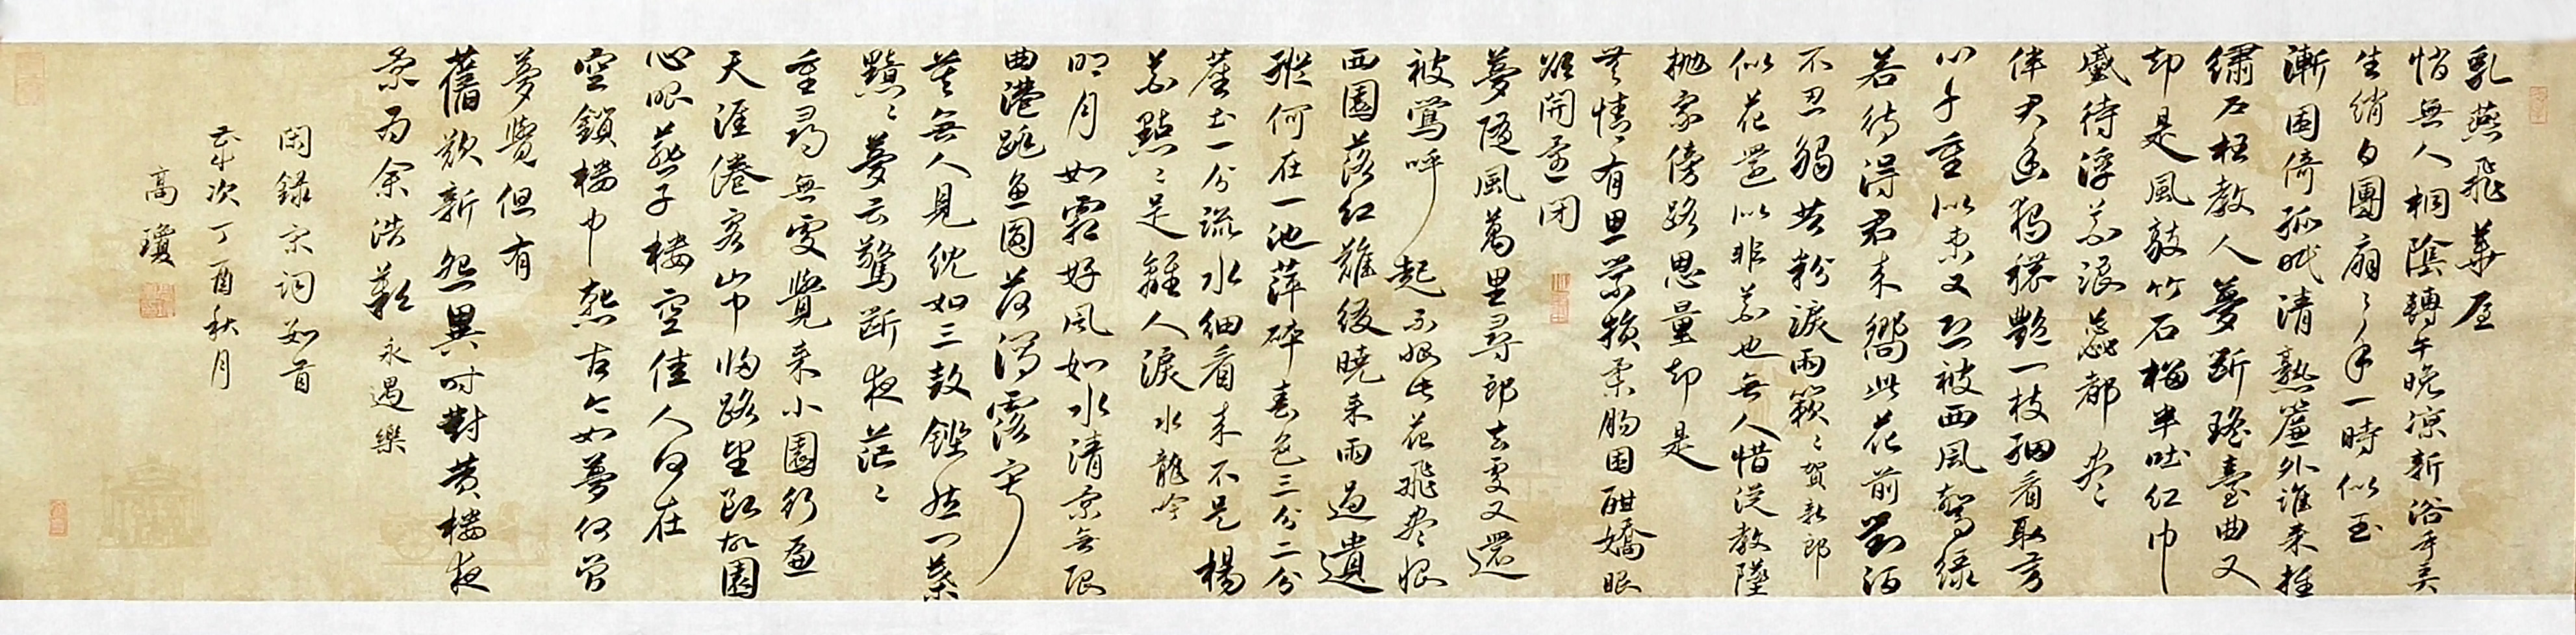 乳燕飛華屋
悄無人桐陰轉午晚涼新浴手弄
生綃白團扇〻手一時似玉
漸困倚孤眠清熟簾外誰來推
繡戶枉教人夢斷瑤臺曲又
却是風敲竹石榴半吐紅巾
蹙待浮花浪蕊都盡
伴君幽獨穠艷一枝細看取芳
心千重似束又恐被西風驚綠
若待得君來嚮此花前對酒
不忍觸共粉淚兩簌〻賀新郎
似花還似非花也無人惜從教墜
拋家傍路思量却是
無情有思縈損柔腸困酣嬌眼
欲開還閉
夢隨風萬里尋郎去處又還
被鶯呼起不恨此花飛盡恨
西園落紅難綴曉來雨過遺
蹤何在一池萍碎春色三分二分
塵土一分流水細看來不是楊
花點〻是離人淚水龍吟
明月如霜好風如水清景無限
曲港跳魚圓荷瀉露寂
寞無人見紞如三鼓鏗然一葉
黯〻夢云驚斷夜茫〻
重尋無處覺來小園行遍
天涯倦客山中歸路望斷故園
心眼燕子樓空佳人何在
空鎖樓中燕古今如夢何曾
夢覺但有
舊歡新怨異時對黃樓夜
景為余浩歎永遇樂
閑錄宋詞數首
歲次丁酉秋月
高瓊